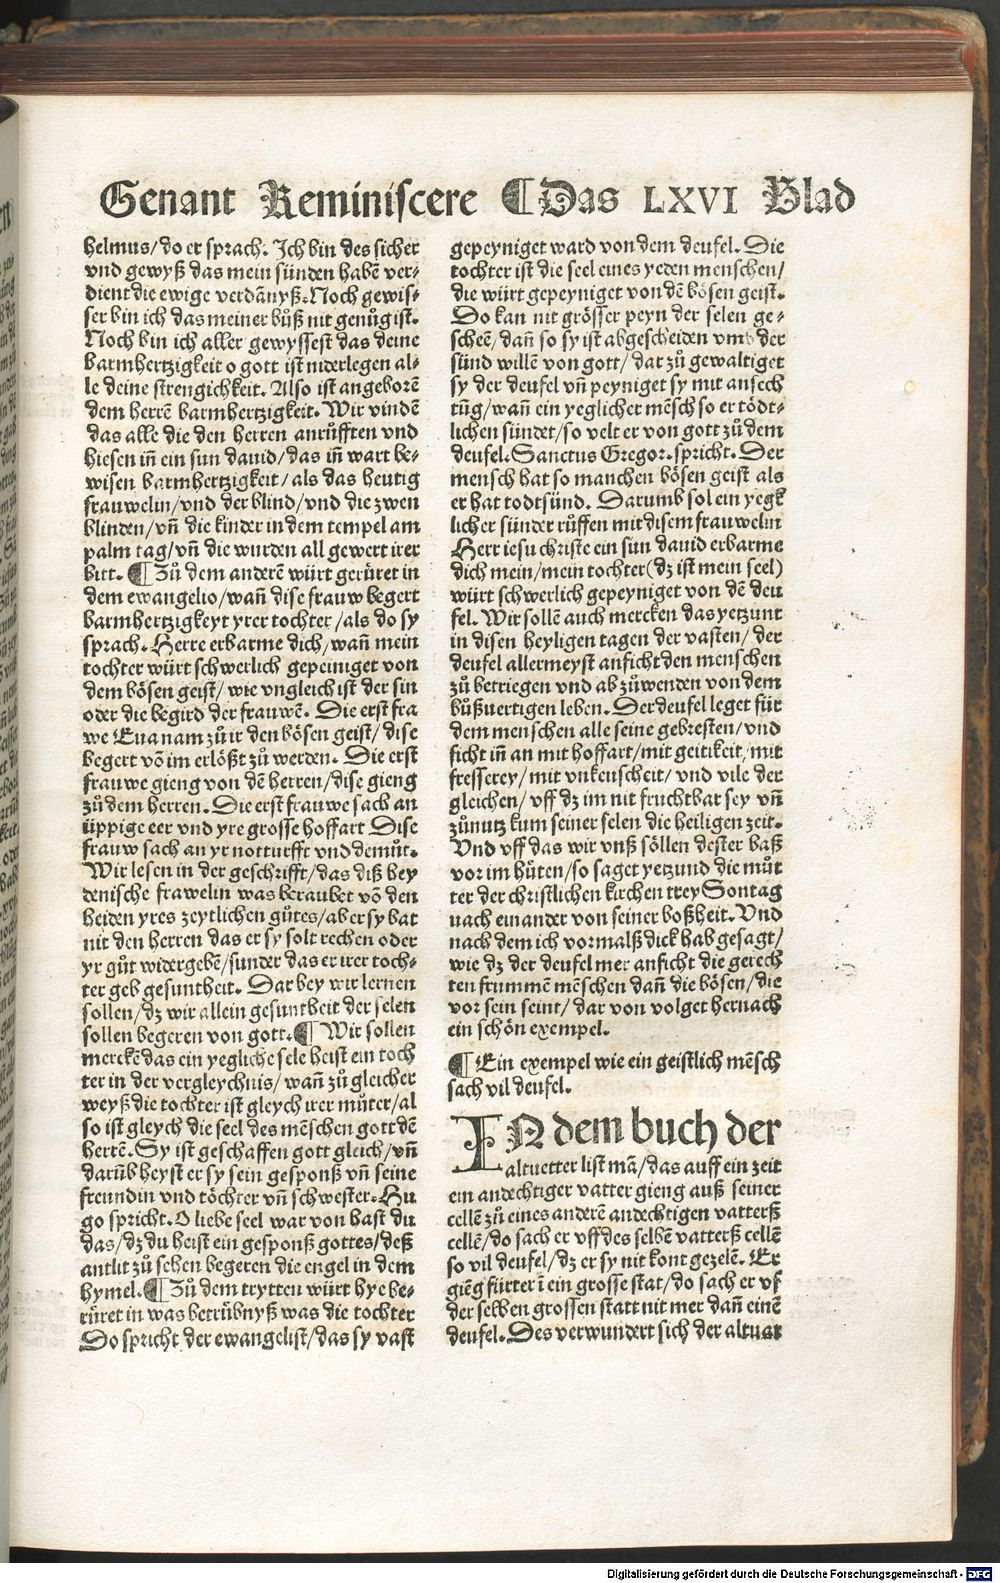 Genant Reminiscere ¶ Das LXVI Blad
helmus/do er sprach. Ich bin des sicher
vnd gewyß das mein sünden habē ver-
dient die ewige verdānyß. Noch gewis-
ser bin ich das meiner bůß nit genůg ist.
Noch bin ich aller gewyssest das deine
barmhertzigkeit o gott ist niderlegen al-
le deine strengichkeit. Also ist angeborē
dem herrē barmhertzigkeit. Wir vindē
das alle die den herren anrůfften vnd
hiesen in̄ ein sun dauid/das in̄ wart be-
wisen barmhertzigkeit/als das heutig
frauwelin/vnd der blind/vnd die zwen
blinden/vn̄ die kinder in dem tempel am
palm tag/vn̄ die wurden all gewert irer
bitt. ¶ Zů dem anderē würt gerüret in
dem ewangelio/wan̄ dise frauw begert
barmhertzigkeyt yrer tochter/als do sy
sprach. Herre erbarme dich/wan̄ mein
tochter würt schwerlich gepeiniget von
dem bösen geist/wie vngleich ist der sin
oder die begird der frauwē. Die erst fra
we Eua nam zů ir den bösen geist/dise
begert vō im erlößt zů werden. Die erst
frauwe gieng von dē herren/dise gieng
zů dem herren. Die erst frauwe sach an
üppige eer vnd yre grosse hoffart Dise
frauw sach an yr notturfft vnd demůt.
Wir lesen in der geschrifft/das diß hey
denische frawelin was beraubet vō den
heiden yres zeytlichen gůtes/aber sy bat
nit den herren das er sy solt rechen oder
yr gůt widergebē/sunder das er irer toch-
ter geb gesuntheit. Dar bey wir lernen
sollen/dz wir allein gesuntheit der selen
sollen begeren von gott. ¶ Wir sollen
merckē das ein yegliche sele heist ein toch
ter in der vergleychnis/wan̄ zů gleicher
weyß die tochter ist gleych irer můter/al
so ist gleych die seel des mēschen gott dē
herrē. Sy ist geschaffen gott gleich/vn̄
darūb heyst er sy sein gesponß vn̄ seine
freundin vnd töchter vn̄ schwester. Hu
go spricht. O liebe seel war von hast du
das/dz du heist ein gesponß gottes/deß
antlit zů sehen begeren die engel in dem
hymel. ¶ Zů dem trytten würt hye be-
rüret in was betrübnyß was die tochter
Do spricht der ewangelist/das sy vast
gepeyniget ward von dem deufel. Die
tochter ist die seel eines yeden menschen/
die würt gepeyniget von dē bösen geist.
Do kan nit grösser peyn der selen ge-
scheē/dan̄ so sy ist abgescheiden vmb der
sünd willē von gott/dar zů gewaltiget
sy der deufel vn̄ peyniget sy mit anfech
tūg/wan̄ ein yeglicher mēsch so er tödt-
lichen sündet/so velt er von gott zů dem
deufel. Sanctus Gregor. spricht. Der
mensch hat so manchen bösen geist als
er hat todtsünd. Darumb sol ein yegk
licher sünder růffen mit disem frauwelin
Herr iesu christe ein sun dauid erbarme
dich mein/mein tochter (dz ist mein seel)
würt schwerlich gepeyniget von dē deu
fel. Wir sollē auch mercken das yetzunt
in disen heyligen tagen der vasten/der
deufel allermeyst anficht den menschen
zů betriegen vnd ab zů wenden von dem
bůßuertigen leben. Der deufel leget für
dem menschen alle seine gebresten/vnd
ficht in̄ an mit hoffart/mit geitikeit/mit
fresserey/mit vnkeuscheit/vnd vile der
gleichen/vff dz im nit fruchtbar sey vn̄
zů nutz kum seiner selen die heiligen zeit.
Vnd vff das wir vnß söllen dester baß
vor im hüten/so saget yetzund die můt
ter der christlichen kirchen trey Sontag
nach einander von seiner boßheit. Vnd
nach dem ich vormalß dick hab gesagt/
wie dz der deufel mer anficht die gerech
ten frummē mēschen dan̄ die bösen/die
vor sein seint/dar von volget hernach
ein schön exempel.
¶ Ein exempel wie ein geistlich mēsch
sach vil deufel.
IN dem buch der
altuetter list mā/das auff ein zeit
ein andechtiger vatter gieng auß seiner
cellē zů eines anderē andechtigen vatterß
cellē/do sach er vff des selbē vatterß cellē
so vil deufel/dz er sy nit kont gezelē. Er
giēg fürter ī ein grosse stat/do sach er vf
der selben grossen statt nit mer dan̄ einē
deufel. Des verwundert sich der altuat
Digitalisierung gefördert durch die Deutsche Forschungsgemeinschaft - DFG